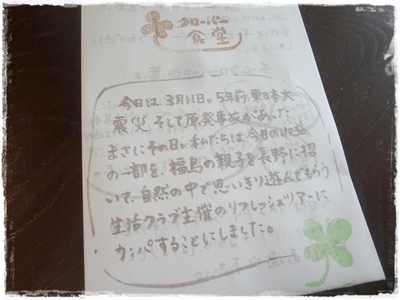 クローバー
食堂
今日は3月11日。5年前、東日本大
震災、そして原発事故があった
まさにその日。私たちは今日の収益
の一部を、福島の親子を長野に招
いて、自然の中で思いきり遊んでもらう
生活クラブ主催のリフレッシュツアーに
カンパすることにしました。